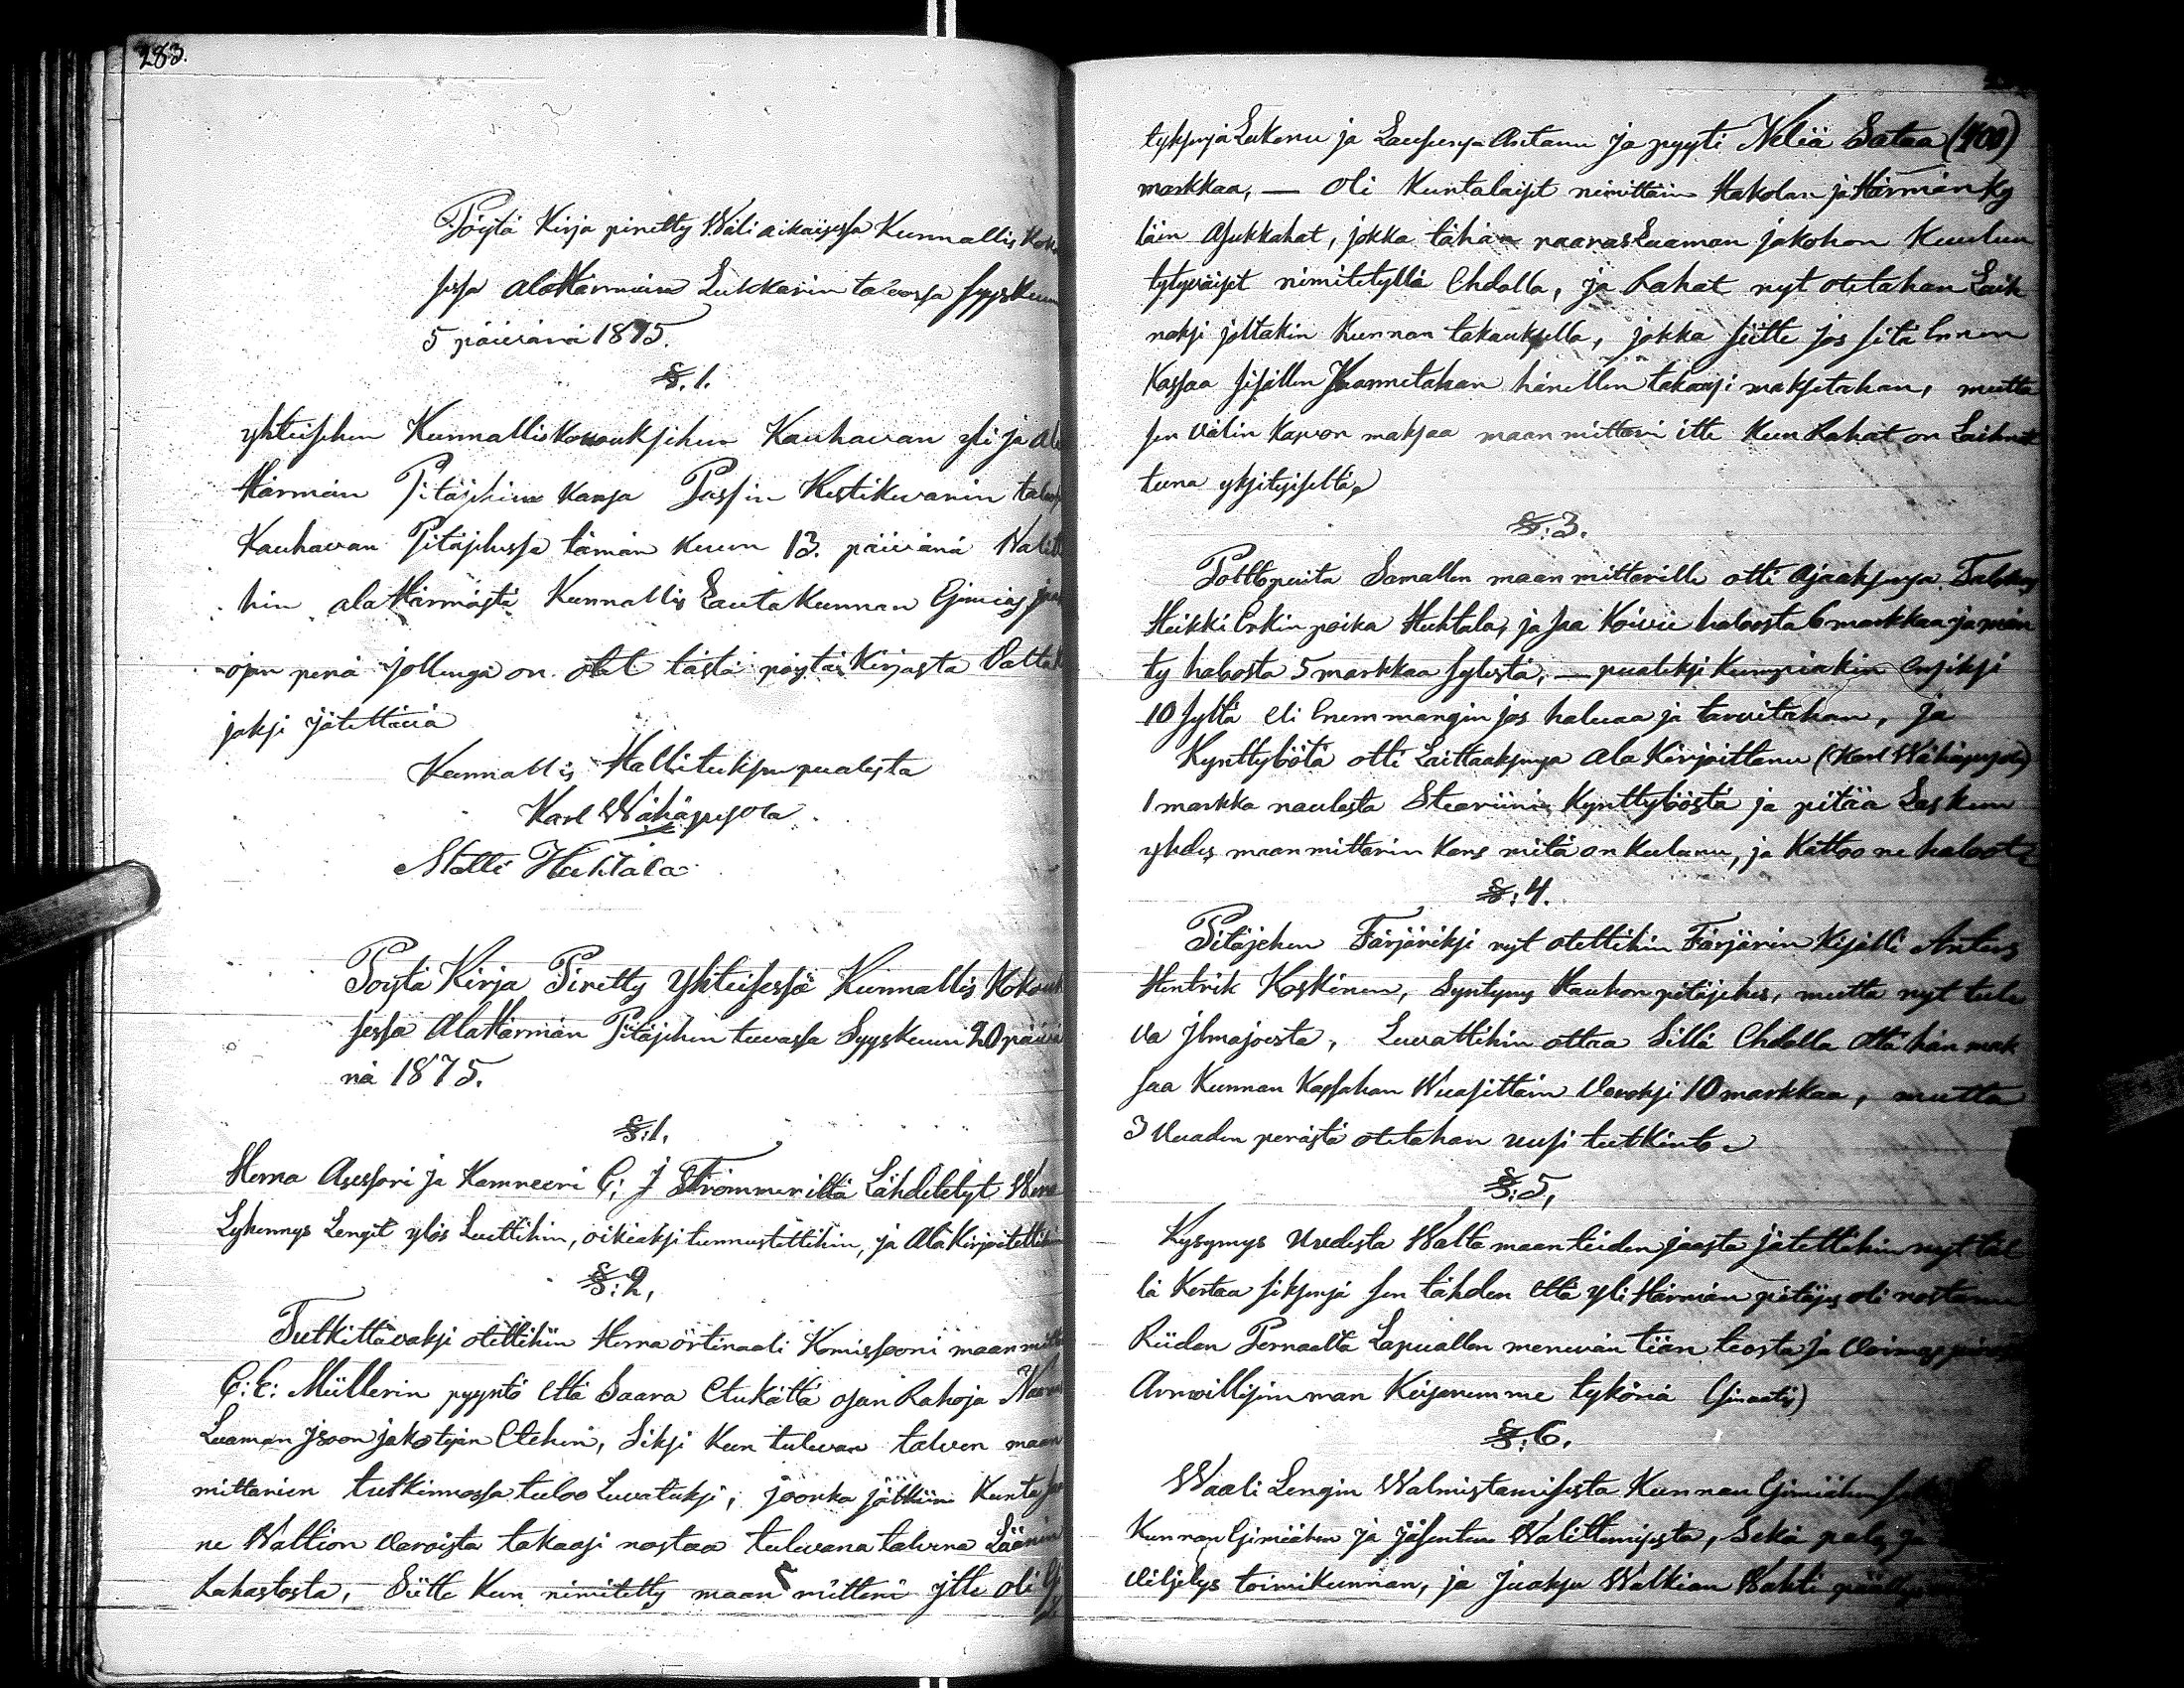 283.
Pöytä Kirja piretty Wäli aikaisessa Kunnallis Koko
sessa alaHärmän Lukkarin talossa syyskuun
5 päivänä 1875.
§. 1.
yhteisehen Kunnalliskokouksehen Kauhavan yli ja ala
Härmän Pitäjihen kansa Passin Kestikuvarin talos
Kauhavan Pitäjehessä tämän kuun 13. päivänä Walit
hin alaHärmästä Kunnallis Lautakunnan Esimies
ojan perä jollenga on otet tästä pöytäKirjasta Valta
jaksi jätettävä
Kunnallis Hallituksen puolesta
Karl Wähäpesola
Matti Huhtala
Pöytä Kirja Piretty Yhteisessä Kunnallis Kokouk
sessa AlaHärmän Pitäjehen tuvassa Syyskuun 20 päivä
nä 1875.
§: 1.
Herra Asessori ja Kamreeri C; J Strömmeriltä Lähdetetyt Wero
Lyhennys Lengit ylös Luettihin, oikiaksi tunnustettihin, ja AlaKirjoitettihin
§: 2,
Tutkittavaksi otettihin Herra örtinaali Komissooni maanmitt
C: E: Müllerin pyyntö että Saara Etukättä osan Rahoja
Luoman Jsoon jakotyön Etehen, Siksi Kun tulevan talven maan
mittarien tutkinnossa tuloo Luvatuksi, joonka jälkiin Kunta saa
ne Waltion varoista takaasi nostaa tulevana talvena Läänin
Rahastosta, Siitte Kun nimitetty maan mittari itte oli
tyksensä Lukenu ja Lausunsa Antanu ja pyyti Neliä Sataa (400)
markkaa, — Oli Kuntalaiset nimittäin Hakolan ja Härmän Ky
läin Asukkahat, jokka tähän Luoman jakohon Kuuluu
tytyväiset nimitetyllä Ehdolla, ja Rahat nyt otetahan Laih
naksi joltakin Kunnan takauksella, jokka siitte jos sitä Ennen
Kassaa sisällen Kannetahan hänellen takaasi maksetahan, mutta
sen välin Kapron maksaa maan mittari itte Kun Rahat on Laihnat
tuna yksityiseltä
§: 3.
Polttopuita Samallen maan mittarille otti Ajaaksensa Talokas
Heikki Erkin poika Huhtala, ja saa Koivu haloosta 6 markkaa ja män
ty halosta 5 markkaa sylestä, — pualeksi kumpiakin Ensiksi
10 syltä eli Enemmängin jos haluaa ja tarvitahan, ja
Kynttylöötä otti Laittaaksensa ala Kirjoittanu (Karl Wähäpesola)
1 markka naulasta Steariini Kynttylöösta ja pitää Laskun
yhdes maanmittarin kans mitä on kulunu, ja Kattoo ne haloot
§: 4.
Pitäjehen Färjäriksi nyt otettihin Färjärin Kisälli Anters
Hentrik Koskinen, Syntyny Kauhon pitäjehes, mutta nyt tule
va Jlmajoesta, Luvattihin ottaa Sillä Ehdolla Että hän mak
saa Kunnan Kassahan Wuasittain Veroksi 10 markkaa, mutta
3 vuaden perästä otetahan uusi tutkinto
§: 5,
Kysymys Uudesta Walta maanteiden jaosta jätettihin nyt täl
lä Kertaa siksensä sen tähden Että yli Härmän pitäjes oli nostanu
Riidan Pernaalta Lapuallen menevän tiän teosta ja
Armoillisimman Keisarimme tykönä (Sinaatis)
§: 6.
Waali Lengin Walmistamisesta Kunnan Esimiähen
Kunnan Esimiähen ja Jäsenten Walittemisesta, Sekä palo
viljelys toimikunnan, ja Juaksu Walkian Wahti